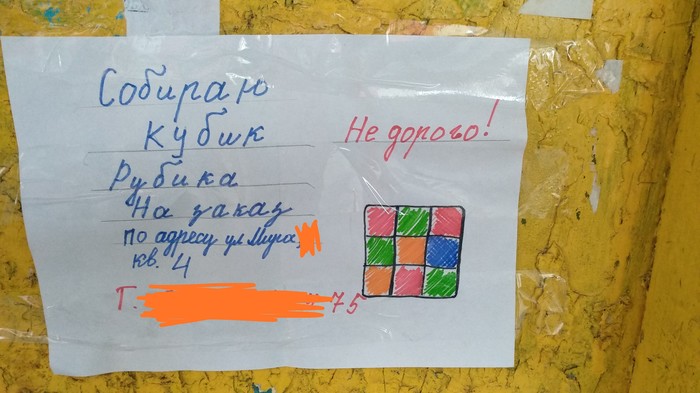 Собираю
Кубик
Не дорого!
Рубика
На заказ
по адресу ул Мира,
кв. 4
Т. 75